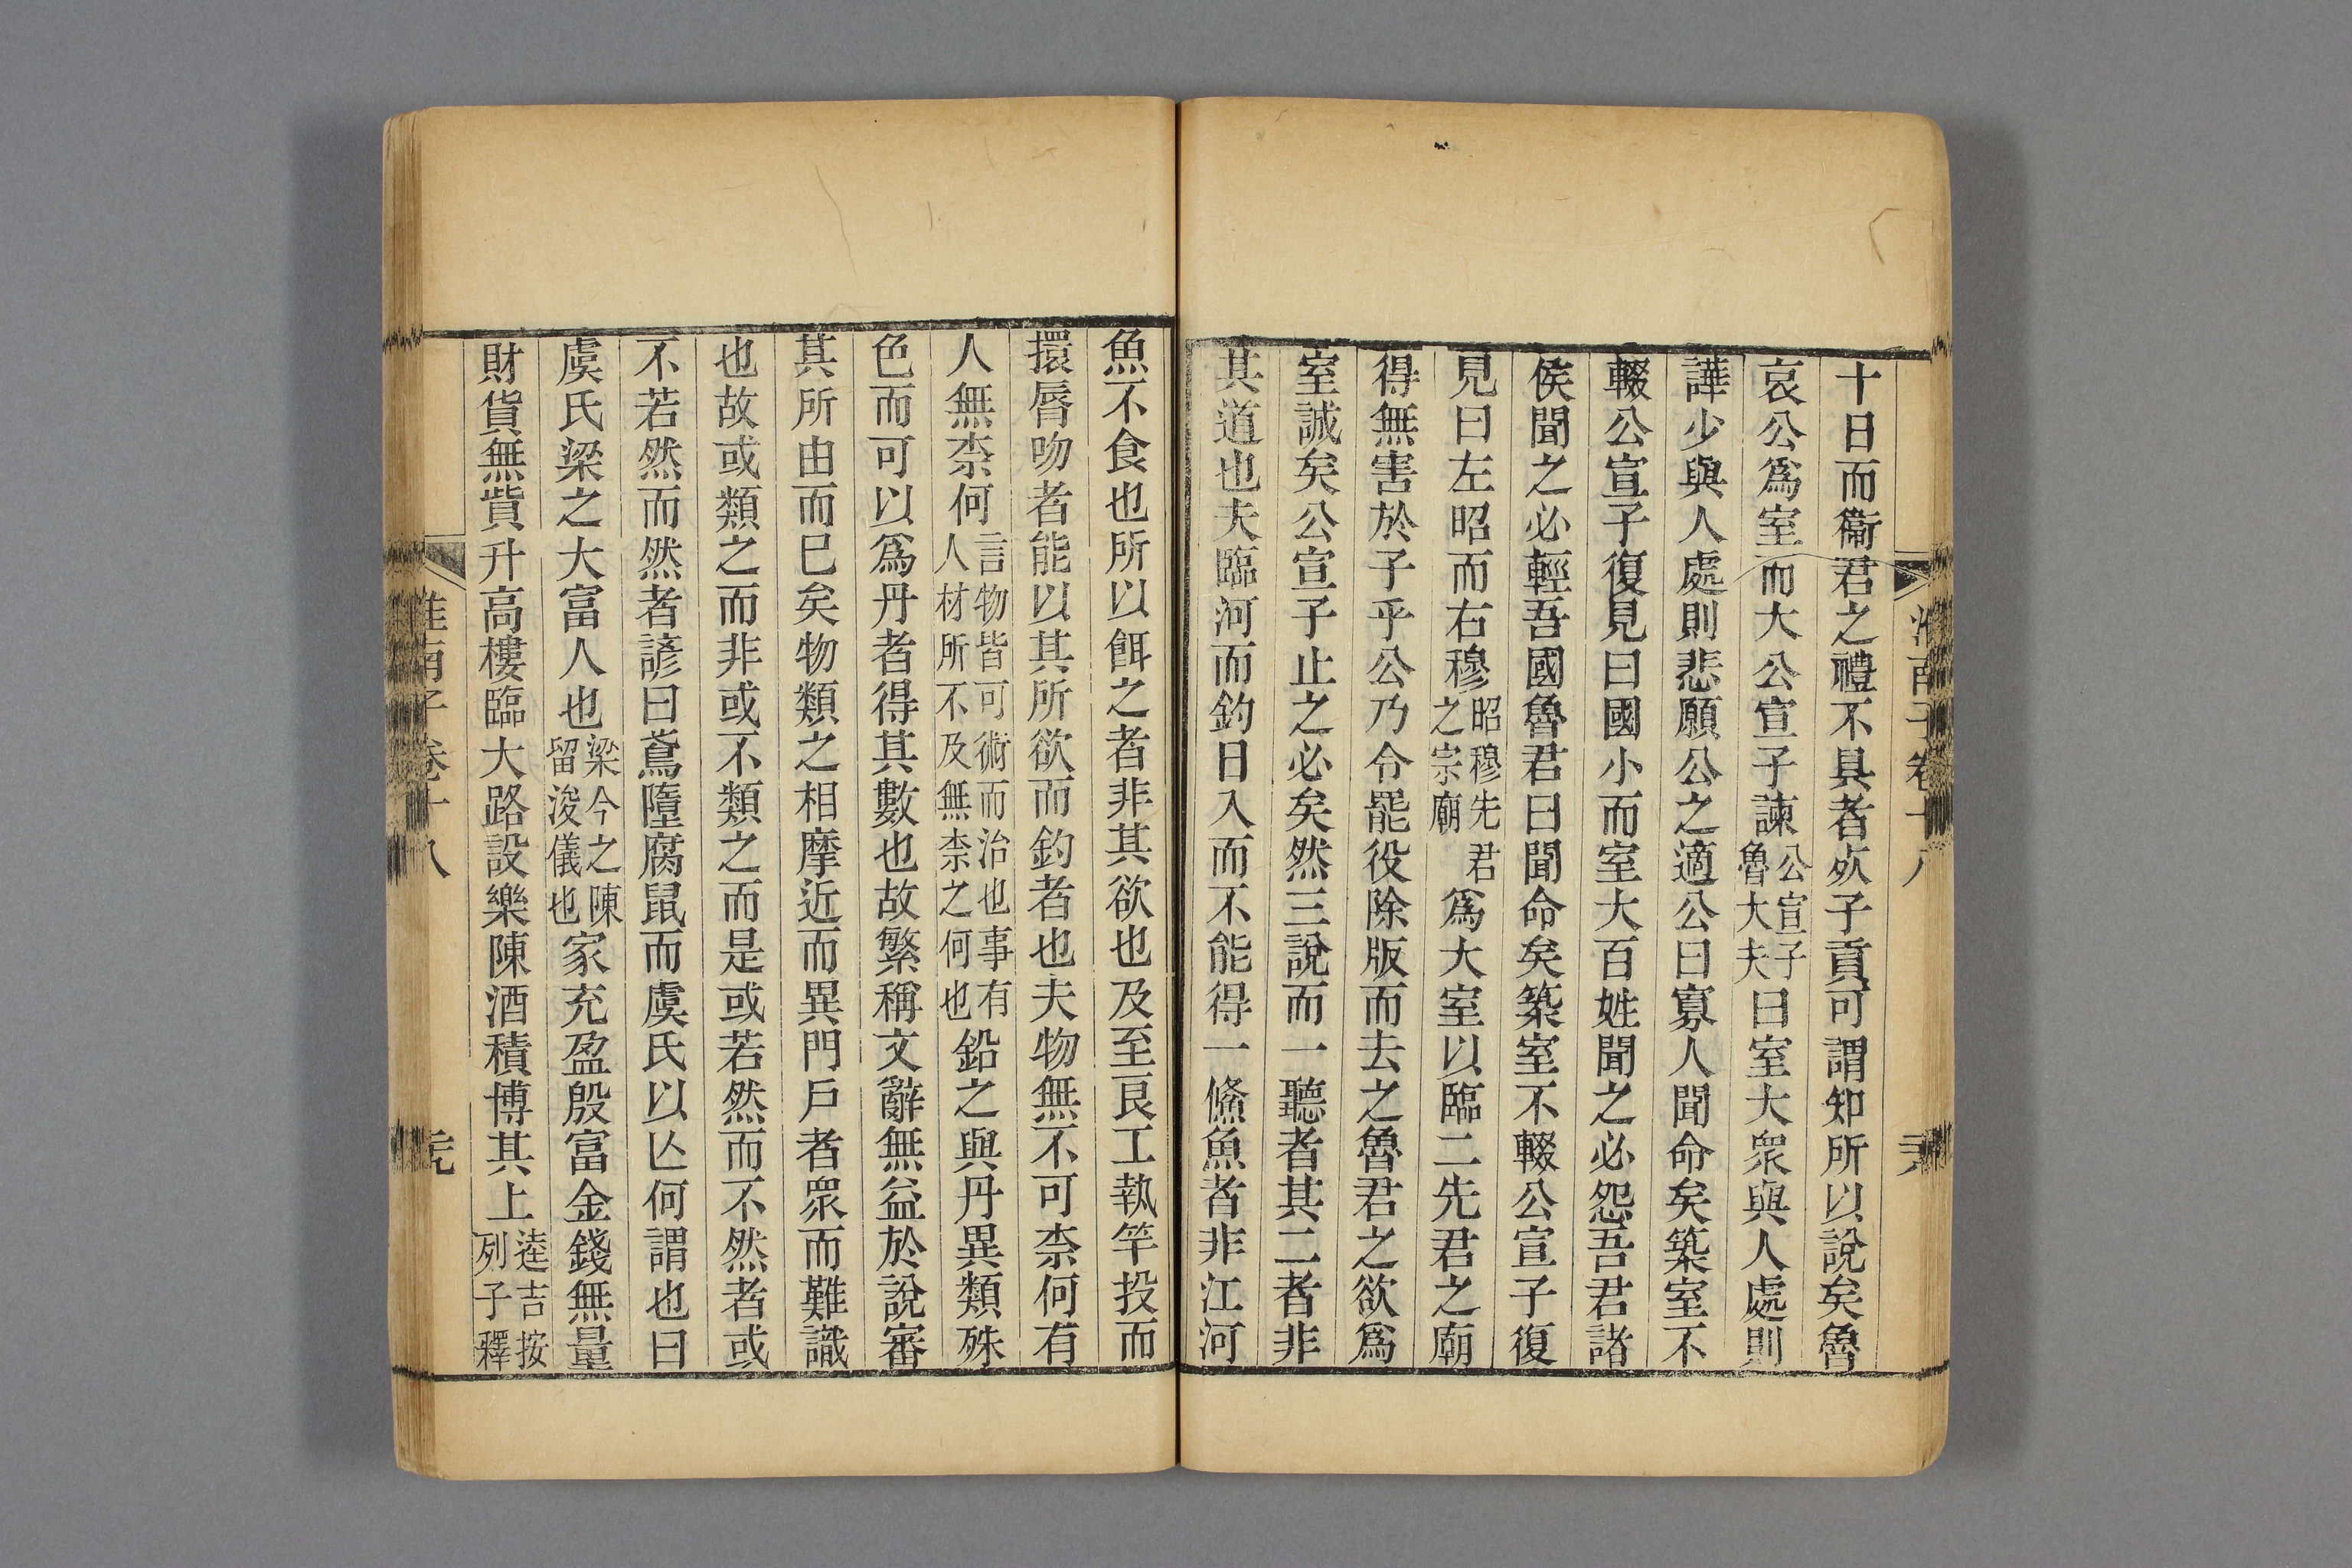 十日而衞君之禮不具者死子貢可謂知所以說矣魯
哀公爲室而大公宣子諫公宣子魯大夫曰室大衆與人處則
譁少與人處則悲願公之適公曰寡人聞命矣築室不
輟公宣子復見曰國小而室大百姓聞之必怨吾君諸
侯聞之必輕吾國魯君曰聞命矣築室不輟公宣子復
見曰左昭而右穆昭穆先君之宗廟爲大室以臨二先君之廟
得無害於子乎公乃令罷役除版而去之魯君之欲爲
室誠矣公宣子止之必矣然三說而一聽者其二者非
其道也夫臨河而釣日入而不能得一鯈魚者非江河
魚不食也所以餌之者非其欲也及至良工執竿投而
擐脣吻者能以其所欲而釣者也夫物無不可柰何有
人無柰何言物皆可術而治也事有人材所不及無柰之何也鉛之與丹異類殊
色而可以爲丹者得其數也故繁稱文辭無益於說審
其所由而巳矣物類之相摩近而異門戶者衆而難識
也故或類之而非或不類之而是或若然而不然者或
不若然而然者諺曰鳶墮腐鼠而虞氏以亾何謂也曰
虞氏梁之大富人也梁今之陳留浚儀也家充盈殷富金錢無量
財貨無貲升高樓臨大路設樂陳酒積博其上逵吉按列子釋
淮南子卷十八